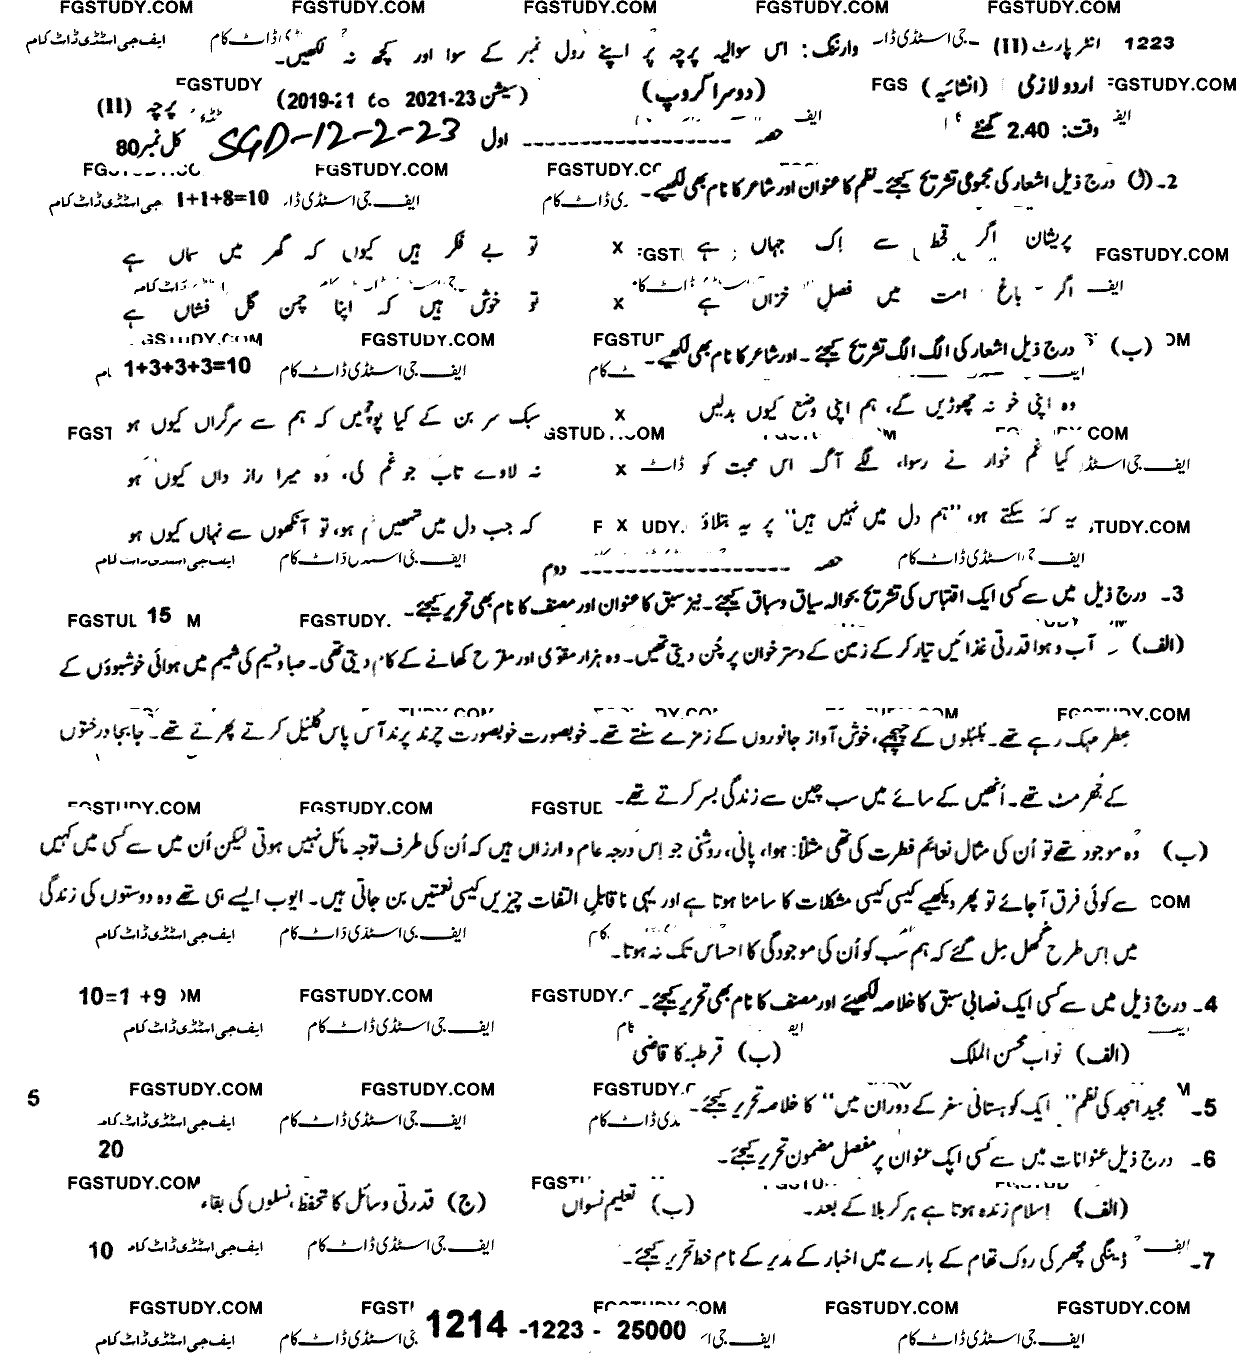 FGSTUDY.COM FGSTUDY.COM FGSTUDY.COM FGSTUDY.COM FGSTUDY.COM
1223 انٹر پارٹ (II) وارننگ: اس سوالیہ پرچہ پر اپنے رول نمبر کے سوا اور کچھ نہ لکھیں۔
اردو لازمی (انشائیہ) (دوسرا گروپ) (سیشن 2021-23 to 2019-21) پرچہ (II)
وقت: 2.40 گھنٹے حصہ ---------- اول SGD-12-2-23 کل نمبر 80
2۔ (ا) درج ذیل اشعار کی مجموعی تشریح کیجئے۔ نظم کا عنوان اور شاعر کا نام بھی لکھیے۔ 1+1+8=10
پریشان اگر قحط سے اِک جہاں ہے x تو بے فکر ہیں کیوں کہ گھر میں سماں ہے
اگر باغ امت میں فصلِ خزاں ہے x تو خوش ہیں کہ اپنا چمن گل فشاں ہے
(ب) درج ذیل اشعار کی الگ الگ تشریح کیجئے۔ اور شاعر کا نام بھی لکھیے۔ 1+3+3+3=10
وہ اپنی خو نہ چھوڑیں گے، ہم اپنی وضع کیوں بدلیں x سبک سر بن کے کیا پوچھیں کہ ہم سے سرگراں کیوں ہو
کیا غم خوار نے رسوا، لگے آگ اس محبت کو x نہ لاوے تاب جو غم کی، وہ میرا راز داں کیوں ہو
یہ کہہ سکتے ہو، "ہم دل میں نہیں ہیں" پر یہ بتلاؤ x کہ جب دل میں تمھیں تم ہو، تو آنکھوں سے نہاں کیوں ہو
حصہ ---------- دوم
3۔ درج ذیل میں سے کسی ایک اقتباس کی تشریح بحوالہ سیاق و سباق کیجئے۔ نیز سبق کا عنوان اور مصنف کا نام بھی تحریر کیجئے۔ 15
(الف) آب و ہوا قدرتی غذائیں تیار کر کے زمین کے دسترخوان پر چُن دیتی تھیں۔ وہ ہزار مقوّی اور مفرّح کھانے کے کام دیتی تھی۔ صبا و نسیم کی شمیم میں ہوائی خوشبوؤں کے
عطر مہک رہے تھے۔ بلبلوں کے چہچہے، خوش آواز جانوروں کے زمزمے سنتے تھے۔ خوبصورت خوبصورت چرند پرند آس پاس کلیل کرتے پھرتے تھے۔ جابجا درختوں
کے جُھرمٹ تھے۔ اُنھیں کے سائے میں سب چین سے زندگی بسر کرتے تھے۔
(ب) وہ موجود تھے تو اُن کی مثال نعائمِ فطرت کی تھی مثلاً: ہوا، پانی، روشنی جو اِس درجہ عام و ارزاں ہیں کہ اُن کی طرف توجہ مائل نہیں ہوتی لیکن اُن میں سے کسی میں کہیں
سے کوئی فرق آ جائے تو پھر دیکھیے کیسی کیسی مشکلات کا سامنا ہوتا ہے اور یہی ناقابلِ التفات چیزیں کیسی نعمتیں بن جاتی ہیں۔ ایوب ایسے ہی تھے وہ دوستوں کی زندگی
میں اِس طرح گھل مِل گئے کہ ہم سب کو اُن کی موجودگی کا احساس تک نہ ہوتا۔
4۔ درج ذیل میں سے کسی ایک نصابی سبق کا خلاصہ لکھیئے اور مصنف کا نام بھی تحریر کیجئے۔ 10=1 +9
(الف) نواب محسن الملک (ب) قرطبہ کا قاضی
5۔ مجید امجد کی نظم "ایک کوہستانی سفر کے دوران میں" کا خلاصہ تحریر کیجئے۔ 5
6۔ درج ذیل عنوانات میں سے کسی ایک عنوان پر مفصل مضمون تحریر کیجئے۔ 20
(الف) اسلام زندہ ہوتا ہے ہر کربلا کے بعد۔ (ب) تعلیم نسواں (ج) قدرتی وسائل کا تحفظ، نسلوں کی بقاء
7۔ ڈینگی مچھر کی روک تھام کے بارے میں اخبار کے مدیر کے نام خط تحریر کیجئے۔ 10
1214 -1223 - 25000